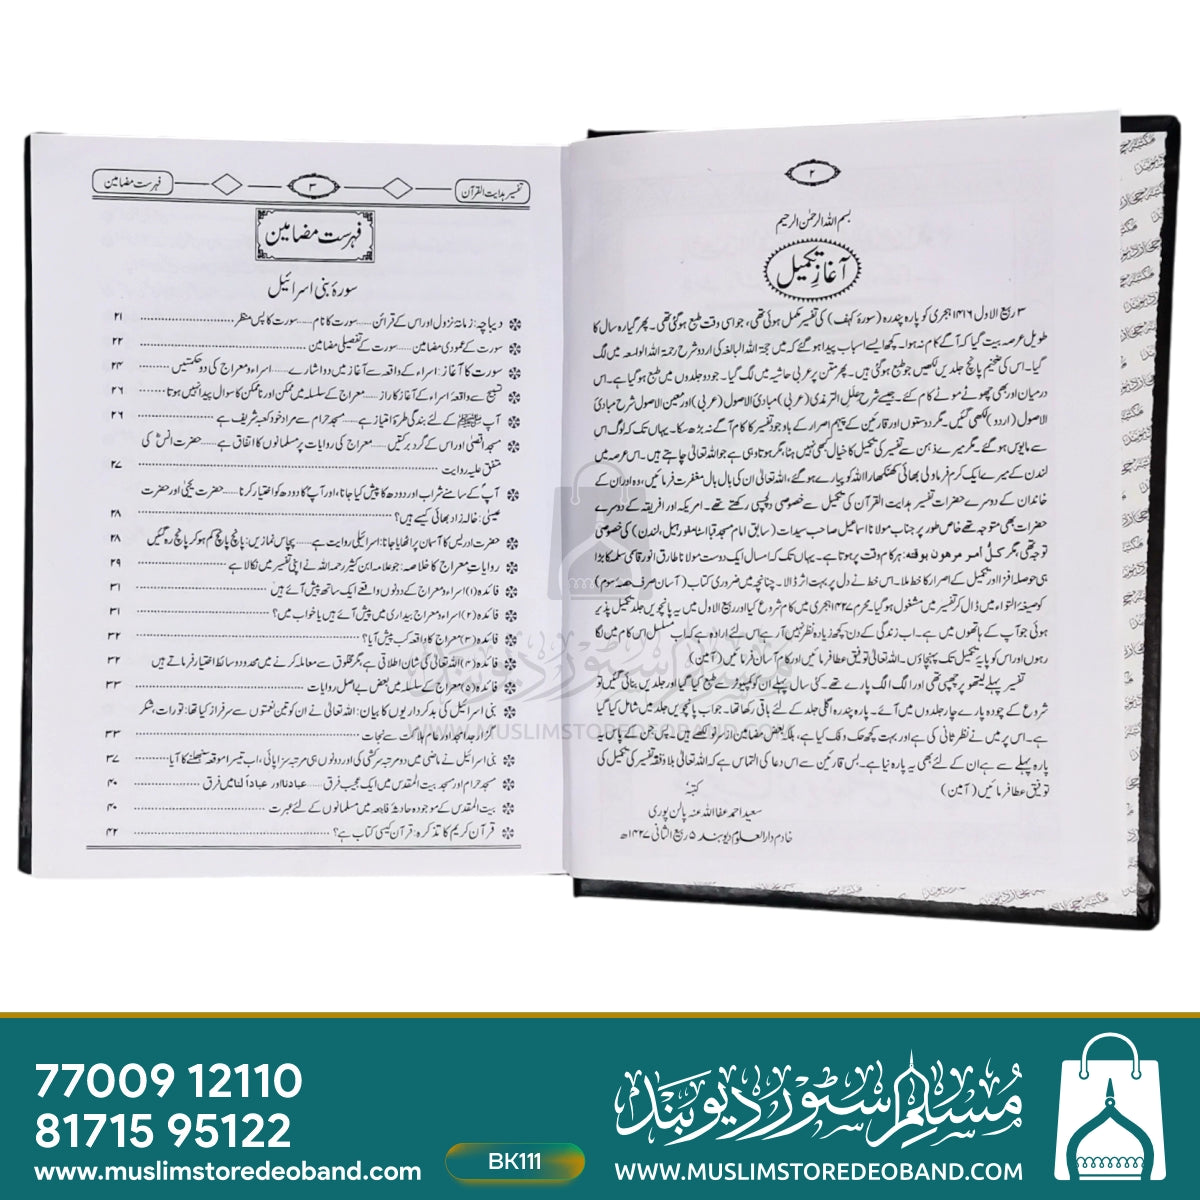 ۲
بسم اللہ الرحمٰن الرحیم
آغازِ تکمیل
۳ ربیع الاول ۱۴۱۶ ہجری کو پارہ پندرہ (سورۂ کہف) کی تفسیر مکمل ہوئی تھی، جو اسی وقت طبع ہوگئی تھی۔ پھر گیارہ سال کا
طویل عرصہ بیت گیا کہ آگے کام نہ ہوا۔ کچھ ایسے اسباب پیدا ہو گئے کہ میں حجۃ اللہ البالغہ کی اردو شرح رحمۃ اللہ الواسعہ میں لگ
گیا۔ اس کی ضخیم پانچ جلدیں لکھیں جو طبع ہوگئی ہیں۔ پھر متن پر عربی حاشیہ میں لگ گیا۔ جو دو جلدوں میں طبع ہو گیا ہے۔ اس
درمیان اور بھی چھوٹے موٹے کام کئے۔ جیسے شرح علل الترمذی (عربی) مبادئ الاصول (عربی) اور معین الاصول شرح مبادئ
الاصول (اردو) لکھی گئیں۔ مگر دوستوں اور قارئین کے پیہم اصرار کے باوجود تفسیر کا کام آگے نہ بڑھ سکا۔ یہاں تک کہ لوگ اس
سے مایوس ہو گئے۔ مگر میرے ذہن سے تفسیر کی تکمیل کا خیال کبھی نہیں ہٹا، مگر ہوتا وہی ہے جو اللہ تعالیٰ چاہتے ہیں۔ اس عرصہ میں
لندن کے میرے ایک کرم فرما ولی بھائی کھنکھارا اللہ کو پیارے ہو گئے، اللہ تعالیٰ ان کی بال بال مغفرت فرمائیں، وہ اور ان کے
خاندان کے دوسرے حضرات تفسیر ہدایت القرآن کی تکمیل سے خصوصی دلچسپی رکھتے تھے۔ امریکہ اور افریقہ کے دوسرے
حضرات بھی متوجہ تھے خاص طور پر جناب مولانا اسماعیل صاحب سیدات (سابق امام مسجد قبا اسٹامفورڈ ہیل، لندن) کی خصوصی
توجہ تھی، مگر کلُّ أمر مرهون بوقته: ہر کام وقت پر ہوتا ہے۔ یہاں تک کہ امسال ایک دوست مولانا طارق انور قاسمی سلمہ کا بڑا
ہی حوصلہ افزا اور تکمیل کے اصرار کا خط ملا۔ اس خط نے دل پر بہت اثر ڈالا۔ چنانچہ میں ضروری کتاب (آسان صرف حصہ سوم)
کو صیغۂ التواء میں ڈال کر تفسیر میں مشغول ہو گیا۔ محرم ۱۴۲۷ ہجری میں کام شروع کیا اور ربیع الاول میں یہ پانچویں جلد تکمیل پذیر
ہوئی جو آپ کے ہاتھوں میں ہے۔ اب زندگی کے دن کچھ زیادہ نظر نہیں آرہے اس لئے ارادہ ہے کہ اب مسلسل اس کام میں لگا
رہوں اور اس کو پایۂ تکمیل تک پہنچاؤں۔ اللہ تعالیٰ توفیق عطا فرمائیں اور کام آسان فرمائیں (آمین)
تفسیر پہلے لیتھو پر چھپی تھی اور الگ الگ پارے تھے۔ کئی سال پہلے ان کو کمپیوٹر سے طبع کیا گیا اور جلدیں بنائی گئیں تو
شروع کے چودہ پارے چار جلدوں میں آئے۔ پارہ پندرہ اگلی جلد کے لئے باقی رکھا تھا۔ جو اب پانچویں جلد میں شامل کیا گیا
ہے۔ اس پر میں نے نظر ثانی کی ہے اور بہت کچھ حک و فک کیا ہے، بلکہ بعض مضامین از سرنو لکھے ہیں۔ پس جن کے پاس یہ
پارہ پہلے سے ہے ان کے لئے بھی یہ پارہ نیا ہے۔ بس قارئین سے اس دعا کی التماس ہے کہ اللہ تعالیٰ بلا وقفہ تفسیر کی تکمیل کی
توفیق عطا فرمائیں (آمین)
کتبہٗ
سعید احمد عفا اللہ عنہ پالن پوری
خادم دارالعلوم دیوبند ۵ ربیع الثانی ۱۴۲۷ھ
تفسیر ہدایت القرآن ۳ فہرست مضامین
فہرست مضامین
سورۂ بنی اسرائیل
دیباچہ: زمانۂ نزول اور اس کے قرائن ...... سورت کا نام ...... سورت کا پس منظر ۲۱
سورت کے عمودی مضامین ...... سورت کے تفصیلی مضامین ۲۲
سورت کا آغاز: اسراء کے واقعہ سے آغاز میں دو اشارے ...... اسراء و معراج کی دو حکمتیں ۲۴
تسبیح سے واقعۂ اسراء کے آغاز کا راز ...... معراج کے سلسلہ میں ممکن اور ناممکن کا سوال پیدا نہیں ہوتا ۲۶
آپ ﷺ کے لئے بندگی طرۂ امتیاز ہے ...... مسجد حرام سے مراد خود کعبہ شریف ہے ۲۶
مسجد اقصیٰ اور اس کے گرد برکتیں ...... معراج کی روایات پر مسلمانوں کا اتفاق ہے ...... حضرت انسؓ کی
متفق علیہ روایت ۲۷
آپؐ کے سامنے شراب اور دودھ کا پیش کیا جانا، اور آپؐ کا دودھ کو اختیار کرنا ...... حضرت یحییٰ اور حضرت
عیسیٰ: خالہ زاد بھائی کیسے ہیں؟ ۲۸
حضرت ادریس کا آسمان پر اٹھایا جانا: اسرائیلی روایت ہے ...... پچاس نمازیں: پانچ پانچ کم ہو کر پانچ رہ گئیں ۲۸
روایاتِ معراج کا خلاصہ: جو علامہ ابن کثیر رحمہ اللہ نے اپنی تفسیر میں نکالا ہے ۲۹
فائدہ (۱) اسراء و معراج کے دونوں واقعے ایک ساتھ پیش آئے ہیں ۳۱
فائدہ (۲) اسراء و معراج بیداری میں پیش آئے ہیں یا خواب میں؟ ۳۱
فائدہ (۳) معراج کا واقعہ کب پیش آیا؟ ۳۲
فائدہ (۴) اللہ تعالیٰ کی شان اطلاقی ہے، مگر مخلوق سے معاملہ کرنے میں محدود وسائط اختیار فرماتے ہیں ۳۲
فائدہ (۵) معراج کے سلسلہ میں بعض بے اصل روایات ۳۳
بنی اسرائیل کی بدکرداریوں کا بیان: اللہ تعالیٰ نے ان کو تین نعمتوں سے سرفراز کیا تھا: تورات، شکر
گزار جد امجد اور عام ہلاکت سے نجات ۳۳
بنی اسرائیل نے ماضی میں دو مرتبہ سرکشی کی اور دونوں ہی مرتبہ سزا پائی، اب تیسرا موقعہ سنبھلنے کا آیا ۳۷
مسجد حرام اور مسجد بیت المقدس میں ایک عجیب فرق ...... عبادنا اور عباداً لنا میں فرق ۴۰
بیت المقدس کے موجودہ حادثۂ فاجعہ میں مسلمانوں کے لئے عبرت ۴۰
قرآن کریم کا تذکرہ: قرآن کیسی کتاب ہے؟ ۴۲
مسلم سٹور دیوبند
WWW.MUSLIMSTOREDEOBAND.COM
77009 12110
81715 95122
www.muslimstoredeoband.com
BK111
مسلم سٹور دیوبند
WWW.MUSLIMSTOREDEOBAND.COM